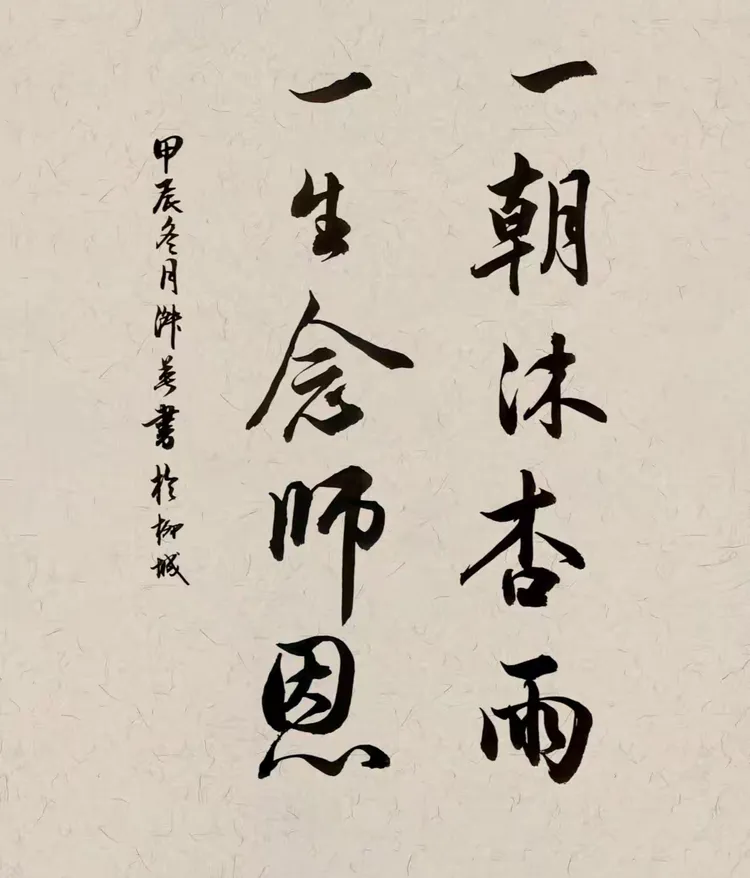 一朝沐杏雨
一生念师恩
甲辰冬月 英書於柳城